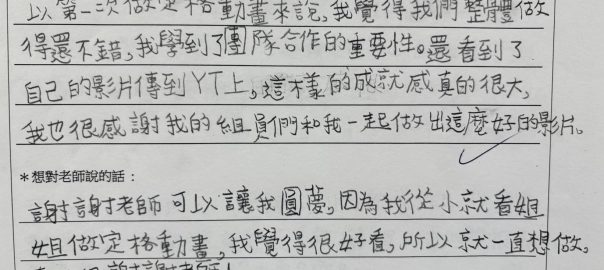 以第一次做定格動畫來說,我覺得我們整體做
得還不錯,我學到了團隊合作的重要性。還看到了
自己的影片傳到YT上,這樣的成就感真的很大,
我也很感謝我的組員們和我一起做出這麼好的影片。
*想對老師說的話:
謝謝老師可以讓我圓夢,因為我從小就看姐
姐做定格動畫,我覺得很好看,所以就一直想做。
謝謝老師!